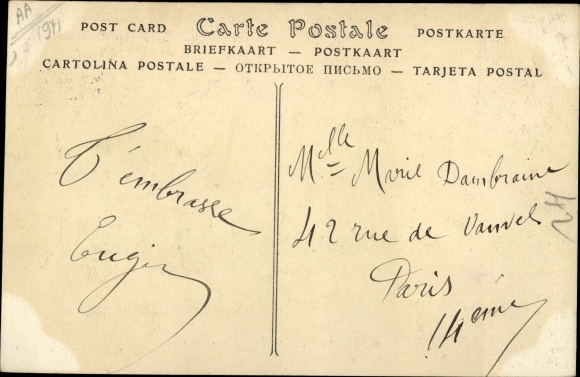 AA
POST CARD Carte Postale POSTKARTE
BRIEFKAART — POSTKAART
CARTOLINA POSTALE — ОТКРЫТОЕ ПИСЬМО — TARJETA POSTAL
T'embrasse
Mlle Marie Dambraine
42 rue de Vanves
Paris
14ème
24